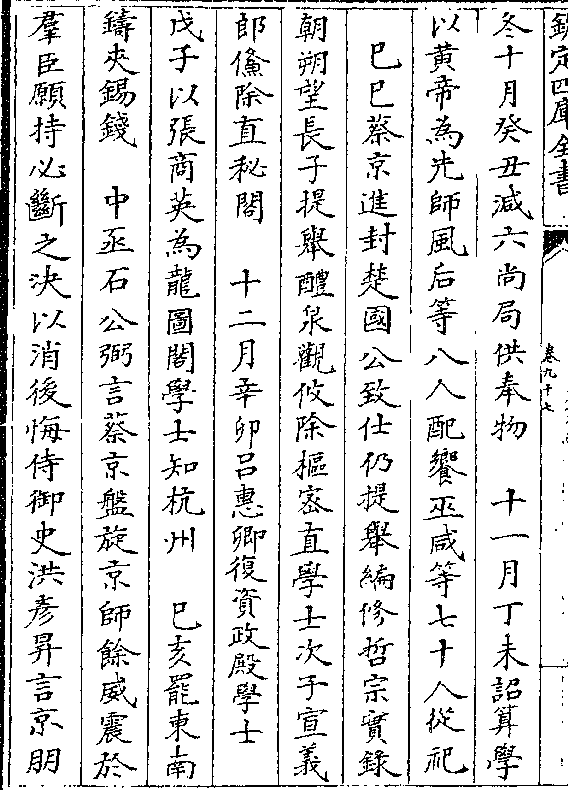 欽定四庫全書
卷九十七
冬十月癸丑減六尚局供奉物　十一月丁未詔算學
以黄帝為先師風后等八人配饗巫咸等七十人從祀
己巳蔡京進封楚國公致仕仍提舉編修哲宗實錄
朝朔望長子提舉醴泉觀攸除樞密直學士次子宣義
郎儵除直秘閣　十二月辛卯吕惠卿復資政殿學士
戊子以張商英為龍圖閣學士知杭州　己亥罷東南
鑄夾錫錢　中丞石公弼言蔡京盤旋京師餘威震於
羣臣願持必斷之決以消後悔侍御史洪彦昇言京朋